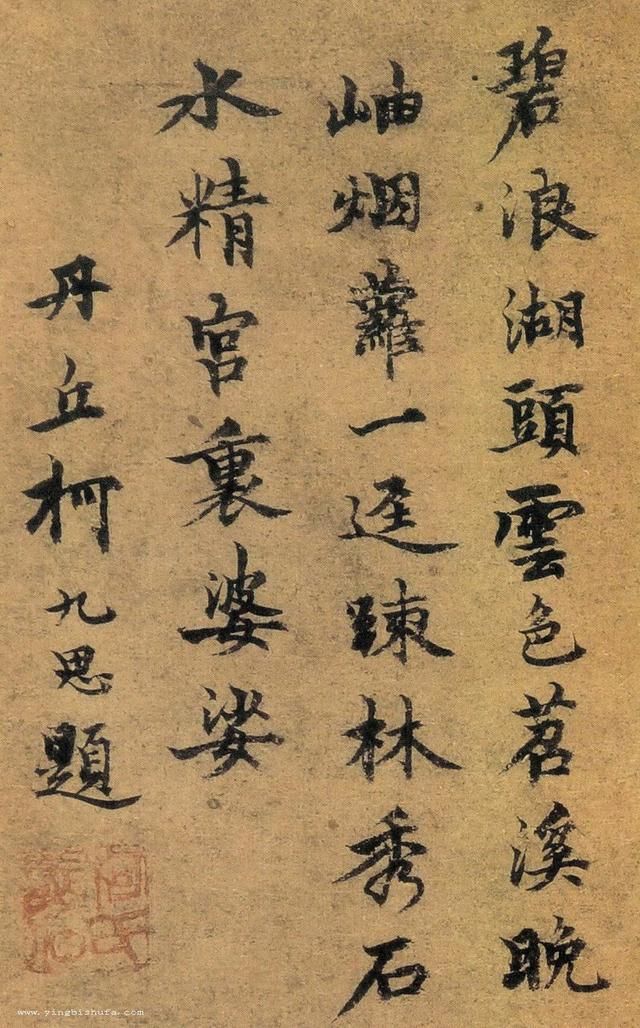 碧浪湖頭雲色苕溪晚
岫烟蘿一逕踈林秀石
水精宮裏婆娑
丹丘柯九思題
www.yingbishufa.com